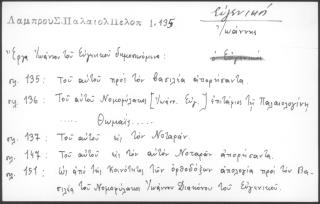 Λαμπρου Σ. Παλαιολ Πελοπ 1.135
Εὐγενικοῦ
Ἰωάννης
Ἔργα Ἰωάννου τοῦ Εὐγενικοῦ δημοσιευόμενα:
σελ. 135: Τοῦ αὐτοῦ πρὸς τὸν βασιλέα ἀπορήσαντα.
σελ. 136: Τοῦ αὐτοῦ Νομοφύλακος [Ἰωάν. Εὐγ.] ἐπιτάφιος τῇ Παλαιολογίνῃ
..... Θωμαΐς .....
σελ. 137: Τοῦ αὐτοῦ εἰς τὸν Νοταρᾶν.
σελ. 147: Τοῦ αὐτοῦ εἰς τὸν αὐτὸν Νοταρᾶν ἀπορήσαντα.
σελ. 151: Ὡς ἀπὸ τῆς Κοινότητος τῶν ὀρθοδόξων ἀπολογία πρὸς τὸν Βα-
σιλέα τοῦ Νομοφύλακος Ἰωάννου Διακόνου τοῦ Εὐγενικοῦ.